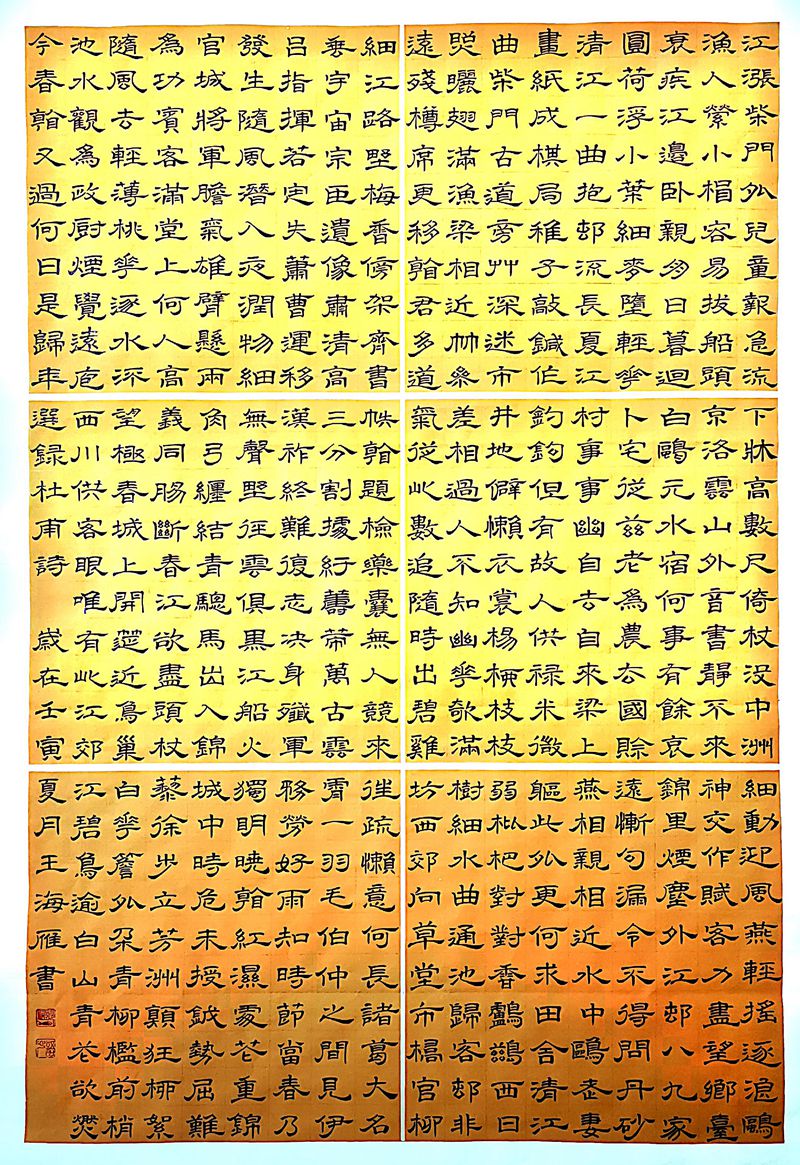 江漲柴門外兒童報急流下牀高數尺倚杖沒中洲細動迎風燕輕搖逐浪鷗
漁人縈小楫容易拔船頭京洛雲山外音書靜不來神交作賦客力盡望鄉臺
衰疾江邊臥親朋日暮迴白鷗元水宿何事有餘哀錦里煙塵外江邨八九家
圓荷浮小葉細麥墮輕華卜宅從茲老為農去國賒遠慚句漏令不得問丹砂
清江一曲抱邨流長夏江村事事幽自去自來梁上燕相親相近水中鷗老妻
畫紙成棋局稚子敲鍼作釣鉤但有故人供祿米微軀此外更何求田舍清江
曲柴門古道旁艸深迷市井地僻懶衣裳楊柳枝枝弱枇杷對對香鸕鶿西日
照曬翅滿漁梁相近竹參差相過人不知幽華欹滿樹細水曲通池歸客邨非
遠殘樽席更移看君多道氣從此數追隨時出碧雞坊西郊向草堂市橋官柳
細江路野梅香傍架齊書帙看題檢藥囊無人競來往疏懶意何長諸葛大名
垂宇宙宗臣遺像肅清高三分割據紆籌策萬古雲霄一羽毛伯仲之間見伊
呂指揮若定失蕭曹運移漢祚終難復志決身殲軍務勞好雨知時節當春乃
發生隨風潛入夜潤物細無聲野徑雲俱黑江船火獨明曉看紅濕處花重錦
官城將軍膽氣雄臂懸兩角弓纏結青驄馬出入錦城中時危未授鉞勢屈難
為功賓客滿堂上何人高義同腸斷春江欲盡頭杖藜徐步立芳洲顛狂柳絮
隨風去輕薄桃華逐水流望極春城上開筵近鳥巢白華簷外朵青柳檻前梢
池水觀為政廚煙覺遠庖西川供客眼唯有此江郊江碧鳥逾白山青花欲燃
今春看又過何日是歸年選錄杜甫詩 歲在壬寅夏月王海雁書